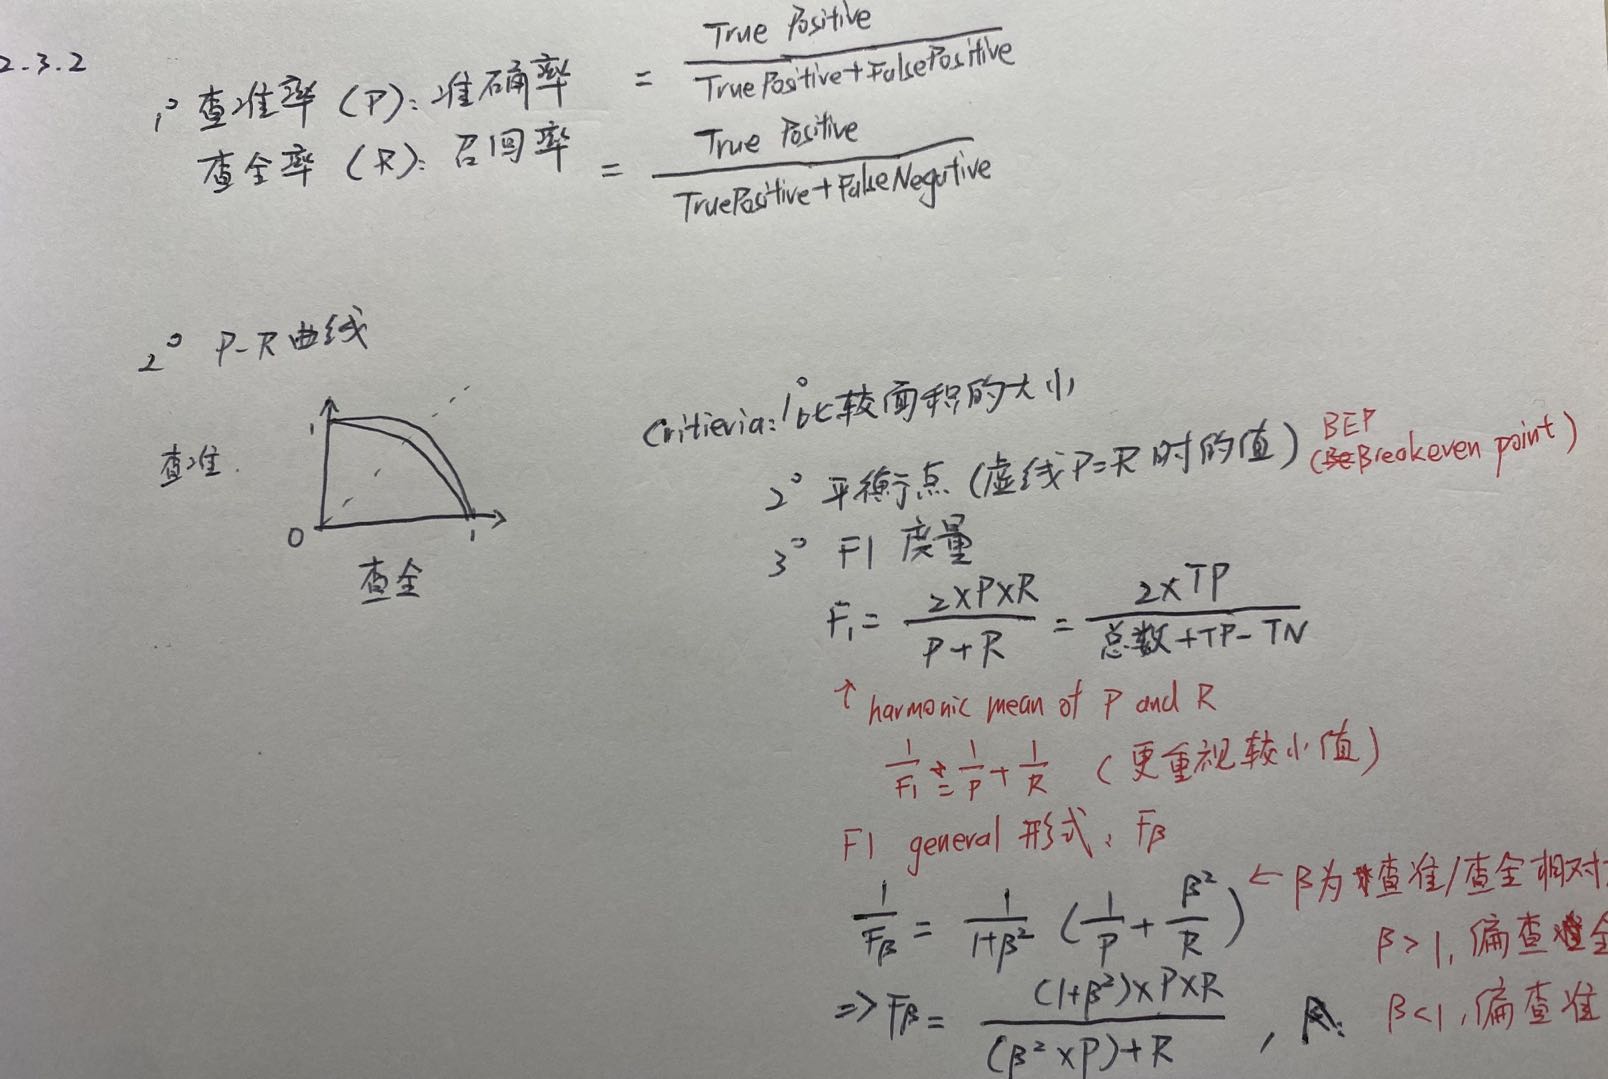 2.3.2
1° 查准率 (P): 准确率 = True Positive / True Positive + False Positive
查全率 (R): 召回率 = True Positive / True Positive + False Negative
2° P-R曲线
查准
1
0
1
查全
Critieria: 1° 比较面积的大小
2° 平衡点 (虚线P=R时的值) BEP (Breakeven point)
3° F1 度量
F₁ = 2×P×R / P+R = 2×TP / 总数+TP-TN
↑ harmonic mean of P and R
1/F₁ = 1/P + 1/R (更重视较小值)
F1 general 形式: Fβ
1/Fβ = 1/1+β² (1/P + β²/R) ← β为查准/查全相对
β>1, 偏查全
⇒ Fβ = (1+β²)×P×R / (β²×P)+R ,
β<1, 偏查准